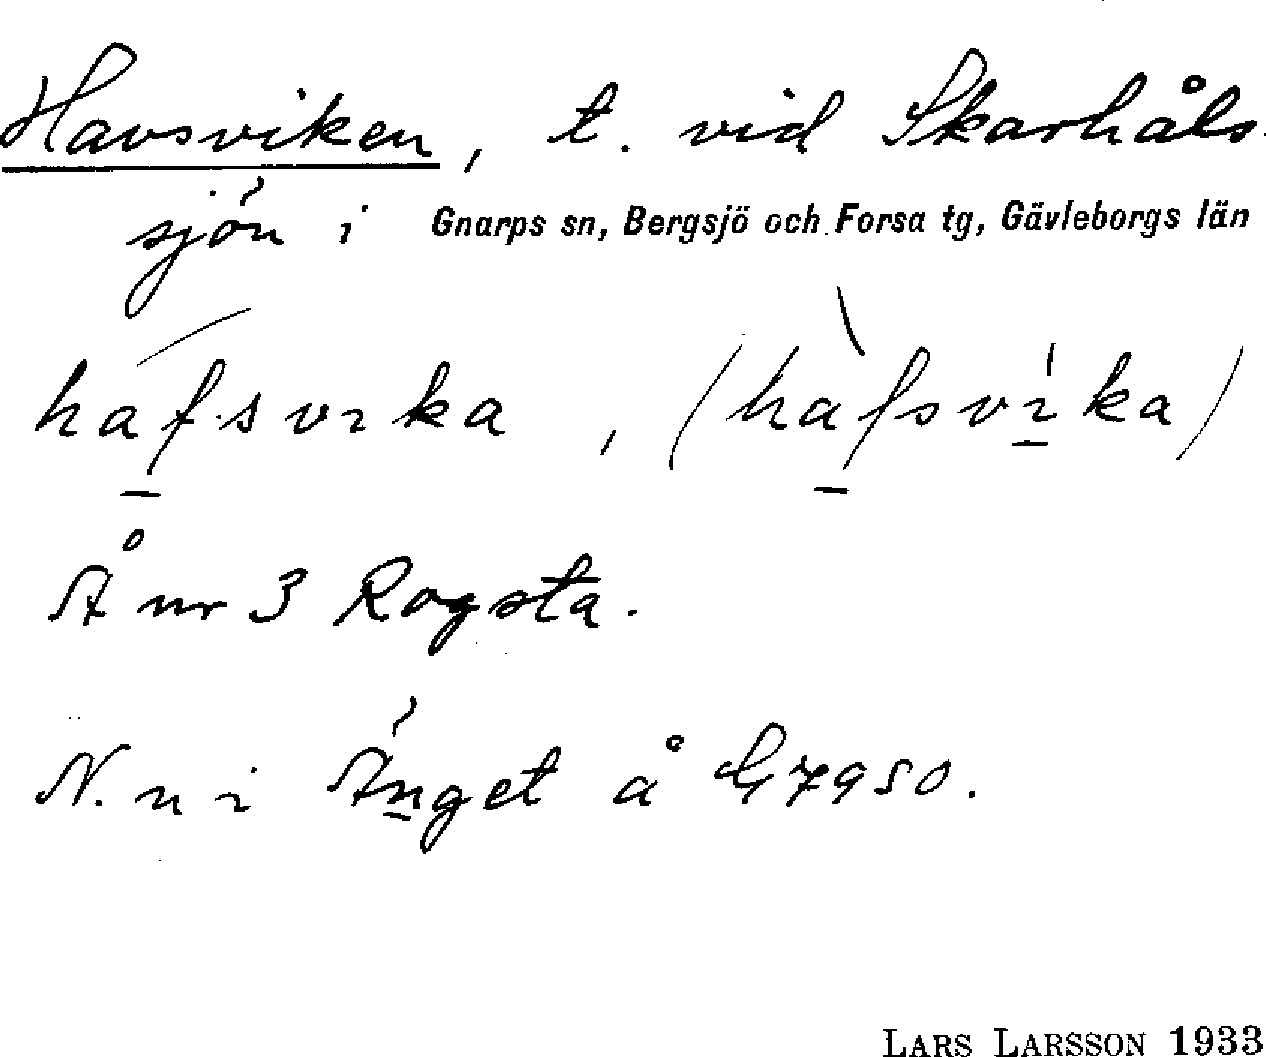 Havsviken, t. vid Skarhåls
sjön i Gnarps sn, Bergsjö och Forsa tg, Gävleborgs län
hafsvıka, (hàfsvıka)
Å nr 3 Rogsta.
N. n i Änget å
LARS LARSSON 1933